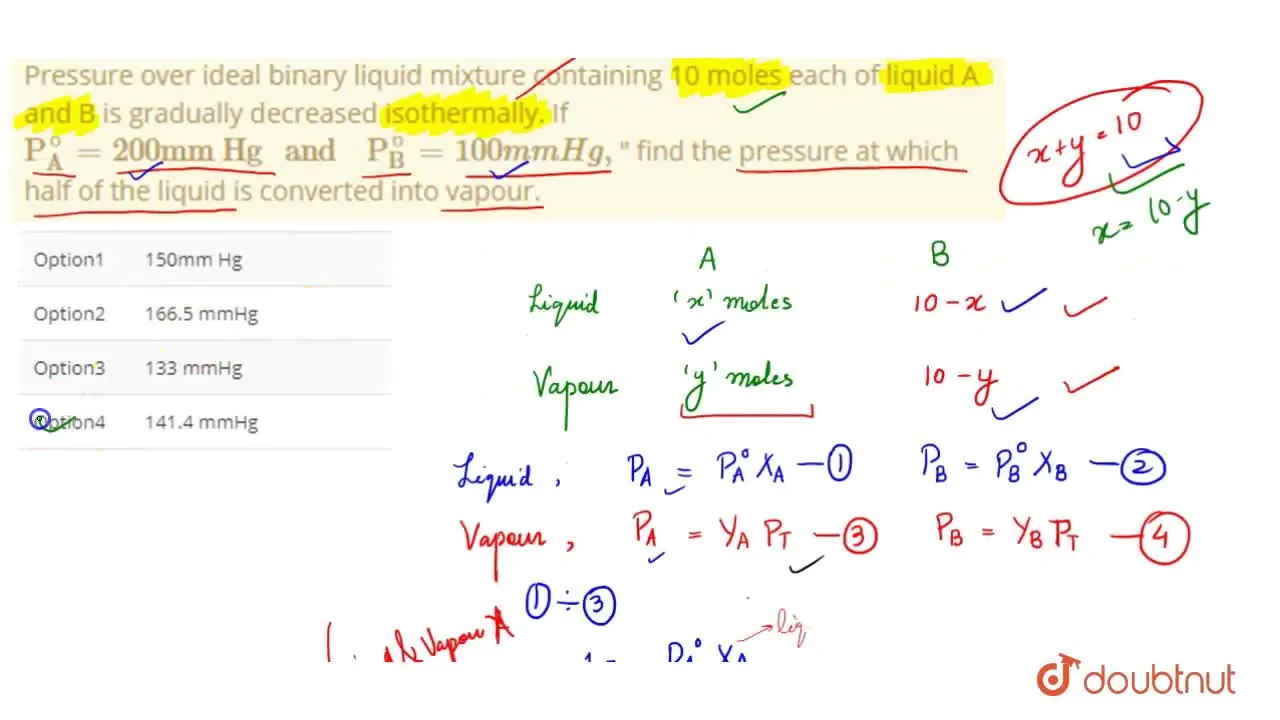 Pressure over ideal binary liquid mixture containing 10 moles each of liquid A
and B is gradually decreased isothermally. If
P°A = 200mm Hg and P°B = 100mmHg, " find the pressure at which
half of the liquid is converted into vapour.
x+y=10
x= 10-y
Option1 150mm Hg
Option2 166.5 mmHg
Option3 133 mmHg
Option4 141.4 mmHg
A B
Liquid 'x' moles 10-x
Vapour 'y' moles 10-y
Liquid, PA = PA° XA —① PB = PB° XB —②
Vapour, PA = YA PT —③ PB = YB PT —④
① ÷ ③
& Vapour A
liq
1 = PA° XA
doubtnut